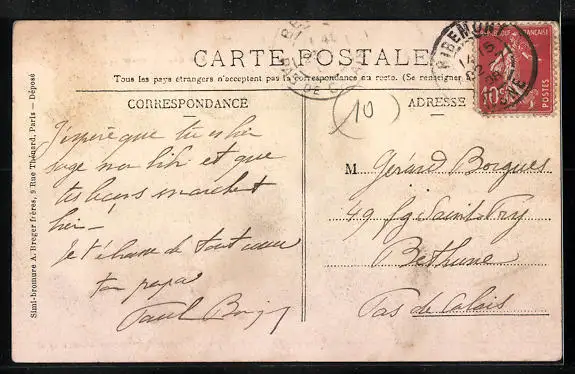 CARTE POSTALE
Tous les pays étrangers n'acceptent pas la correspondance au recto. (Se renseigner
CORRESPONDANCE
ADRESSE
10
J'espère que tu es bien
sage mon et que
tes leçons marchent
bien
Je t'embrasse de tout cœur
ton papa
Paul
M. Gérard Borgues
49 fg Saint Pry
Béthune
Pas de Calais
Simi-bromure A. Breger frères, 9 Rue Thénard, Paris — Déposé
RIBEMONT
AISNE
PAS DE CALAIS
RÉPUBLIQUE FRANÇAISE
10c
POSTES